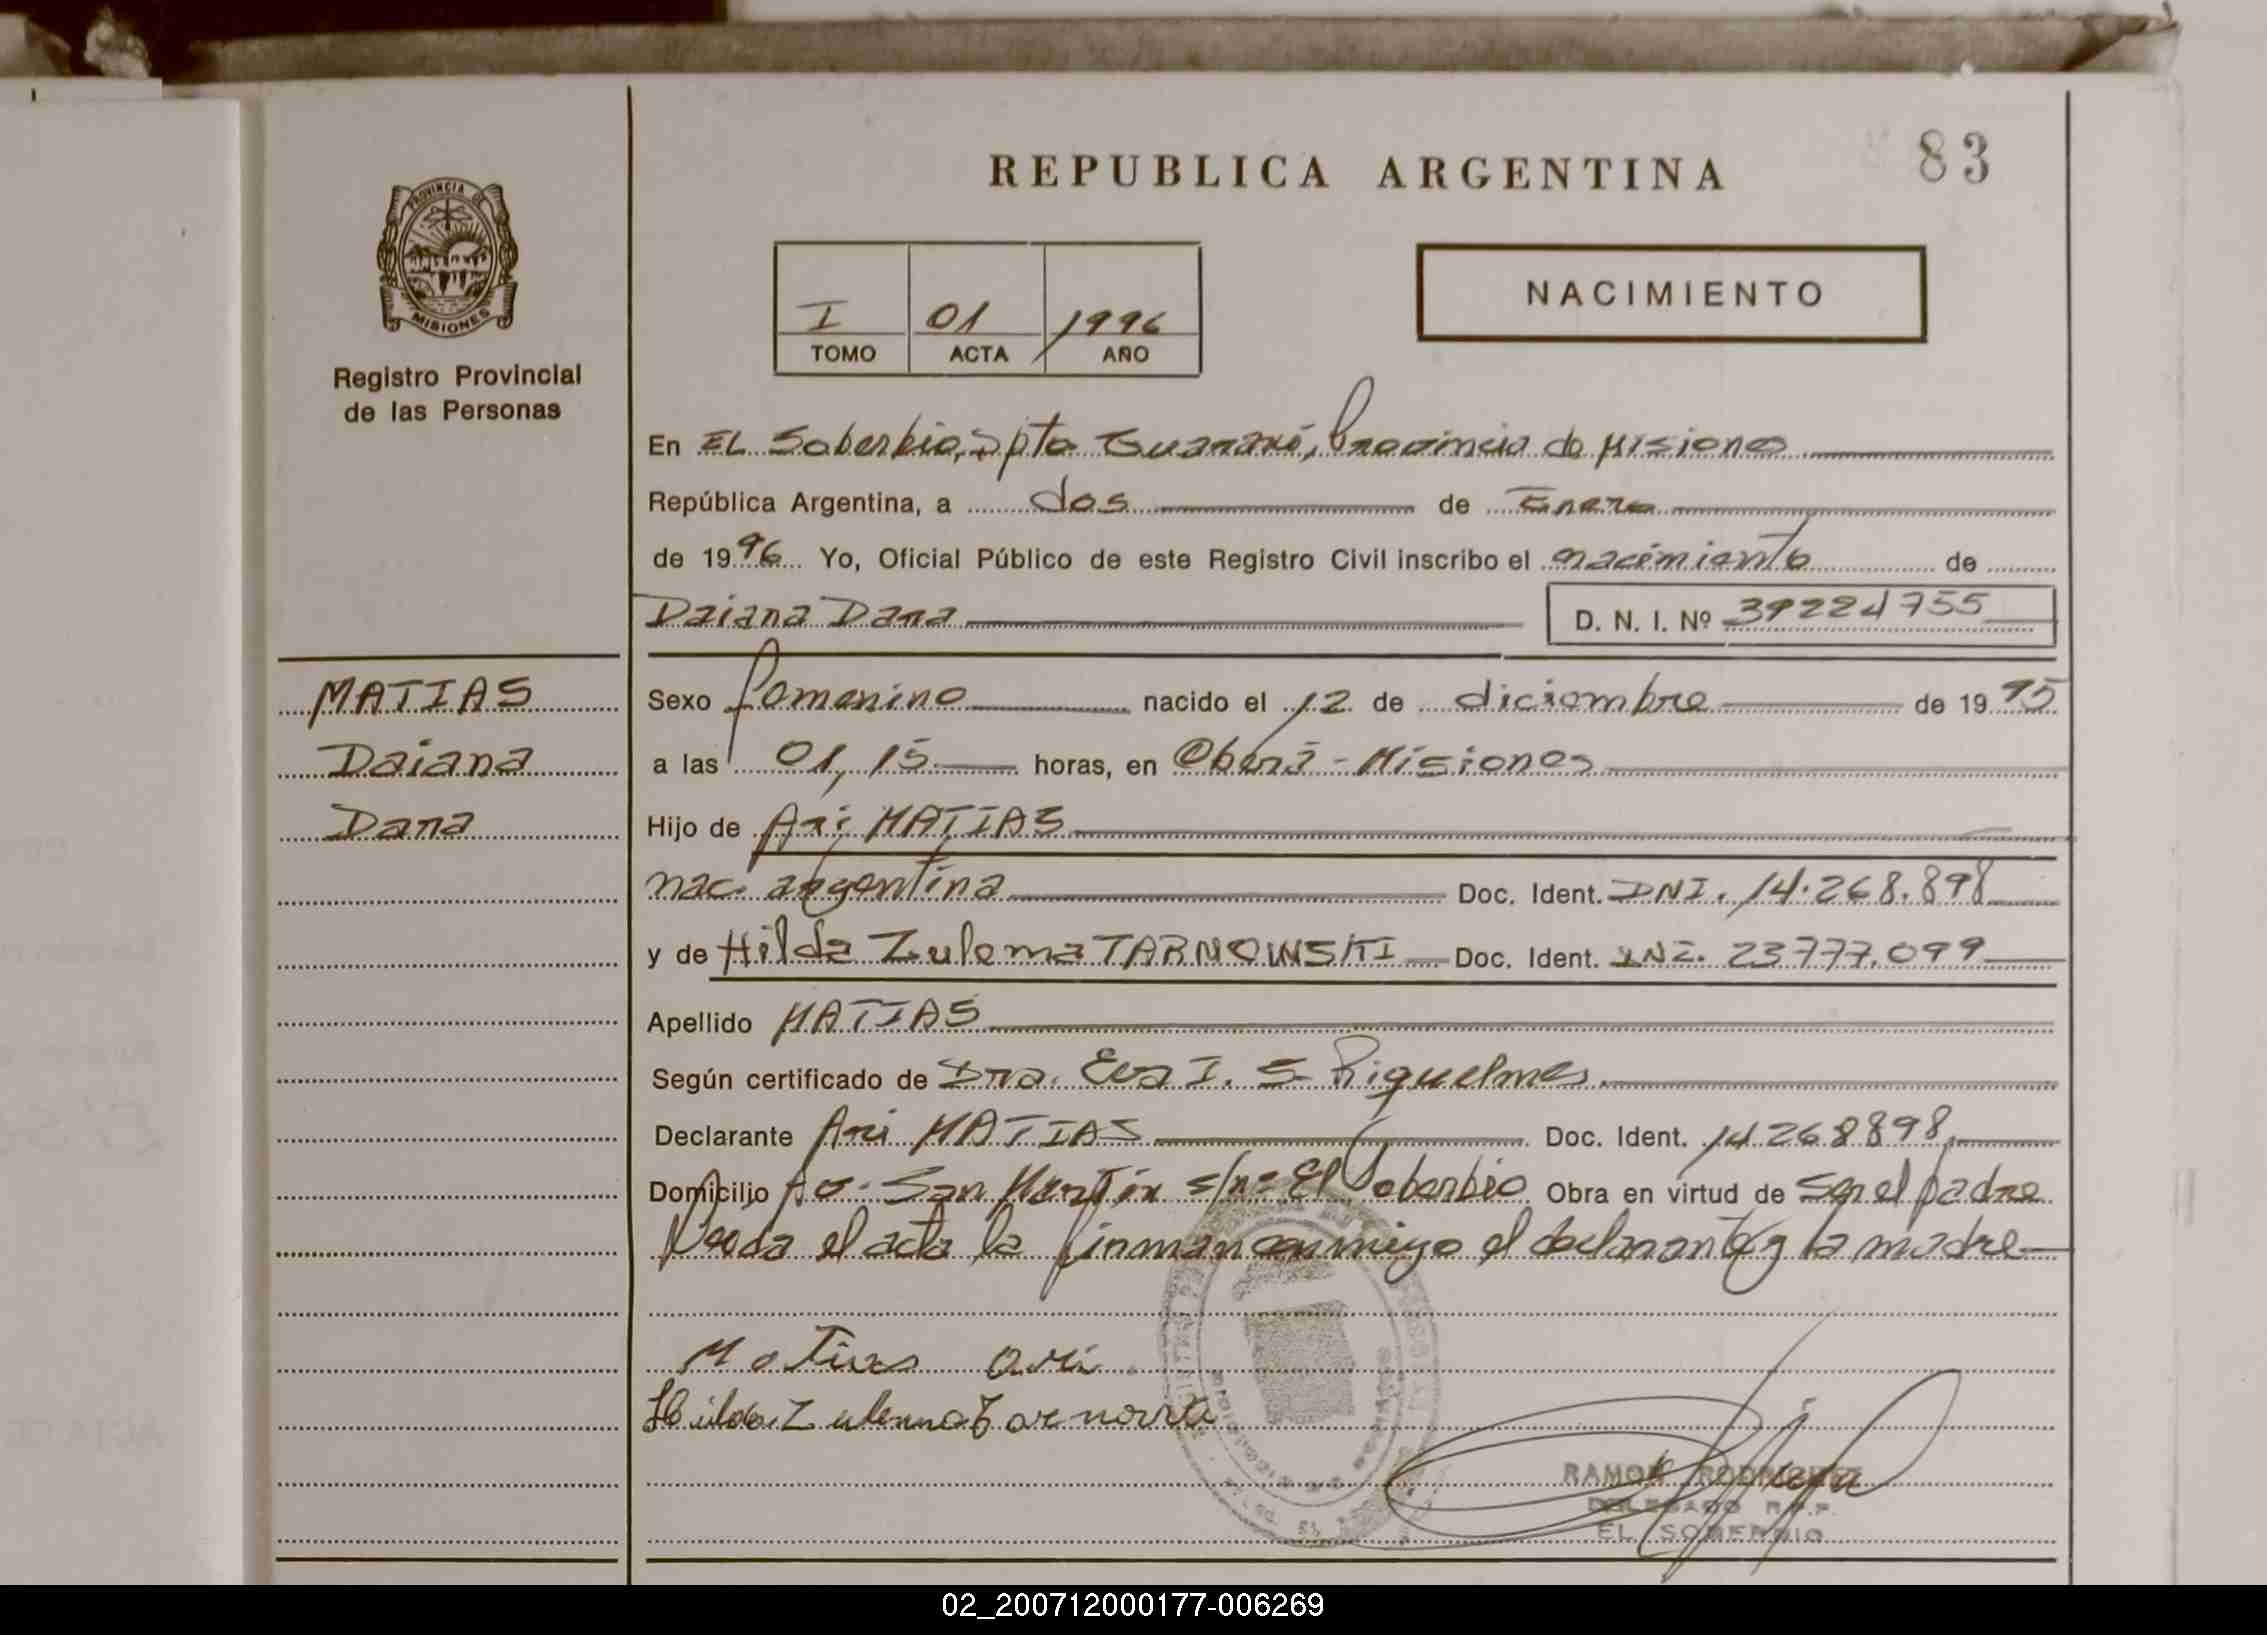 REPUBLICA ARGENTINA
83
PROVINCIA DE
MISIONES
Registro Provincial
de las Personas
I 01 1996
TOMO ACTA AÑO
NACIMIENTO
En EL Soberbio, Dpto Guaraní, Provincia de Misiones
República Argentina, a dos de Enero
de 1996 Yo, Oficial Público de este Registro Civil inscribo el nacimiento de
Daiana Dara
D. N. I. Nº 39224755
MATIAS
Daiana
Dara
Sexo femenino nacido el 12 de diciembre de 1995
a las 01,15 horas, en Oberá - Misiones
Hijo de Ari MATIAS
nac. argentina Doc. Ident. DNI. 14.268.898
y de Hilda Zulema TARNOWSKI Doc. Ident. DNI. 23777.099
Apellido MATIAS
Según certificado de Dra. Eva I. S. Riquelme
Declarante Ari MATIAS Doc. Ident. 14268898
Domicilio Av. San Martín s/nº El Soberbio Obra en virtud de ser el padre
Leida el acta la firman conmigo el declarante y la madre
Matias Ari
Hilda Zulema
RAMON RODRIGUEZ
DELEGADO R.P.P.
EL SOBERBIO
02_200712000177-006269